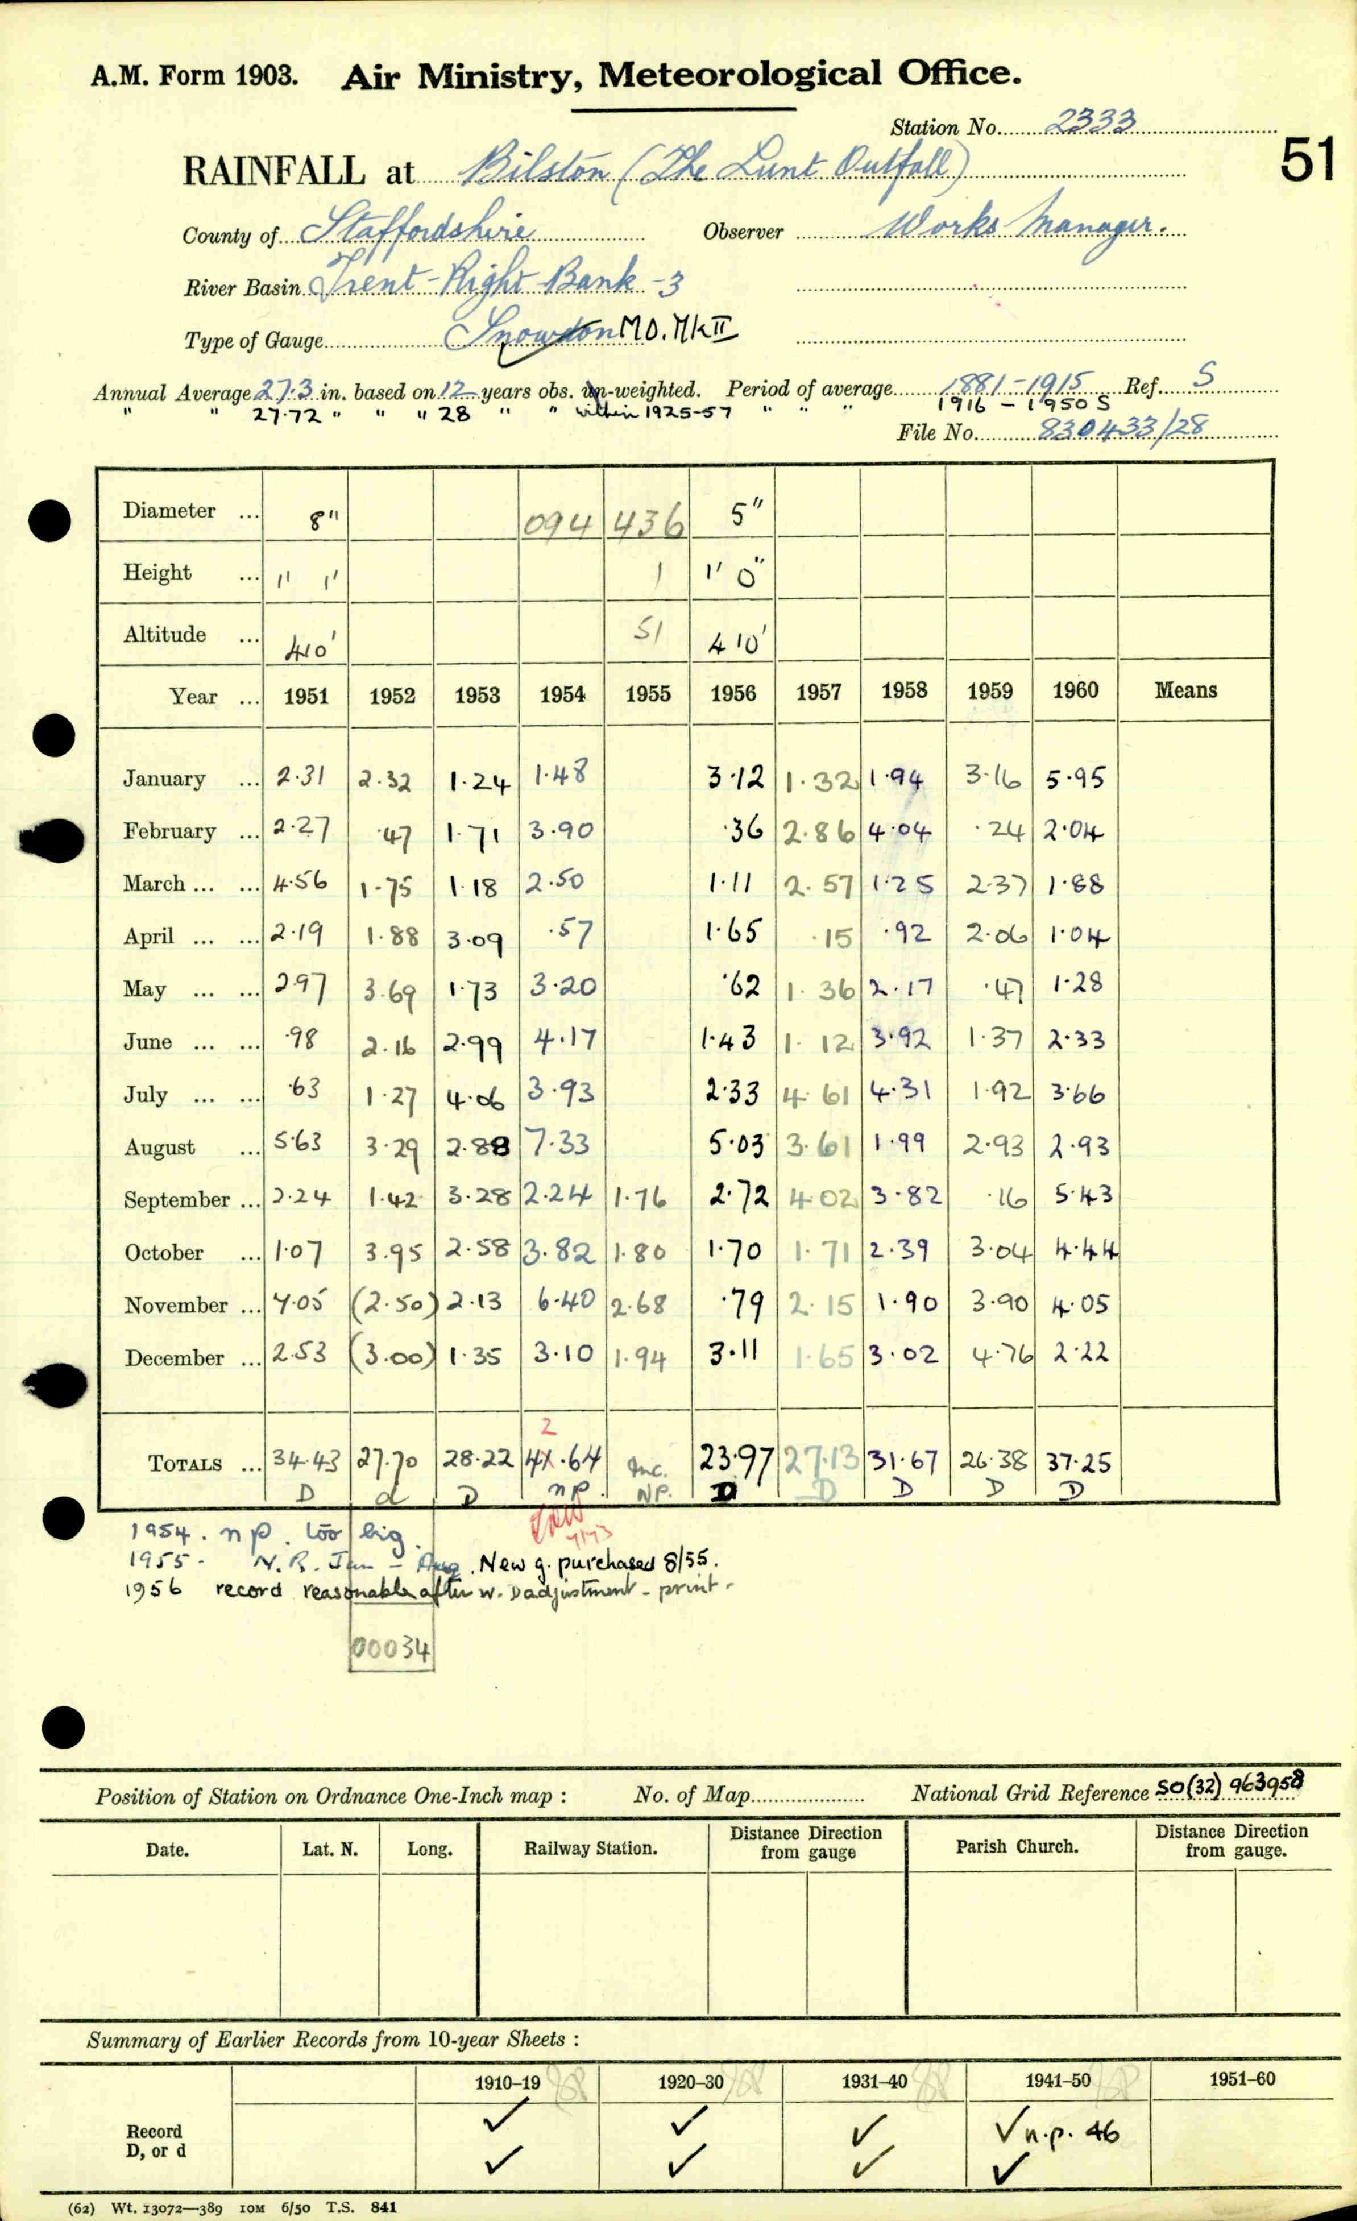 A.M. Form 1903. Air Ministry, Meteorological Office.
Station No. 2333
51
RAINFALL at Bilston (The Lunt Outfall)
County of Staffordshire Observer Works Manager.
River Basin Trent-Right Bank-3
Type of Gauge Snowdon MO. Mk II
Annual Average 27.3 in. based on 12 years obs. un-weighted. Period of average 1881-1915 Ref. S
" " 27.72 " " " 28 " " within 1925-57 " " " 1916 - 1950 S
File No. 830433/28
Diameter ... 8" 094 436 5"
Height ... 1' 1' 1 1' 0"
Altitude ... 410' 51 410'
Year ... 1951 1952 1953 1954 1955 1956 1957 1958 1959 1960 Means
January ... 2.31 2.32 1.24 1.48 3.12 1.32 1.94 3.16 5.95
February ... 2.27 .47 1.71 3.90 .36 2.86 4.04 .24 2.04
March ... ... 4.56 1.75 1.18 2.50 1.11 2.57 1.25 2.37 1.88
April ... ... 2.19 1.88 3.09 .57 1.65 .15 .92 2.06 1.04
May ... ... 2.97 3.69 1.73 3.20 .62 1.36 2.17 .47 1.28
June ... ... .98 2.16 2.99 4.17 1.43 1.12 3.92 1.37 2.33
July ... ... .63 1.27 4.06 3.93 2.33 4.61 4.31 1.92 3.66
August ... 5.63 3.29 2.88 7.33 5.03 3.61 1.99 2.93 2.93
September ... 2.24 1.42 3.28 2.24 1.76 2.72 4.02 3.82 .16 5.43
October ... 1.07 3.95 2.58 3.82 1.80 1.70 1.71 2.39 3.04 4.44
November ... 7.05 (2.50) 2.13 6.40 2.68 .79 2.15 1.90 3.90 4.05
December ... 2.53 (3.00) 1.35 3.10 1.94 3.11 1.65 3.02 4.76 2.22
2
TOTALS ... 34.43 27.70 28.22 41.64 Inc. 23.97 27.13 31.67 26.38 37.25
D d D np. NP. D D D D D
1954. np. too big.
1955- N.R. Jan - Aug. New g. purchased 8/55.
1956 record reasonable after w. D adjustment - print.
00034
Position of Station on Ordnance One-Inch map : No. of Map National Grid Reference SO(32) 963958
Date. Lat. N. Long. Railway Station. Distance from gauge Direction Parish Church. Distance Direction from gauge.
Summary of Earlier Records from 10-year Sheets :
1910-19 1920-30 1931-40 1941-50 1951-60
Record ✓ ✓ ✓ ✓ n.p. 46
D, or d ✓ ✓ ✓ ✓
(62) Wt. 13072—389 10M 6/50 T.S. 841